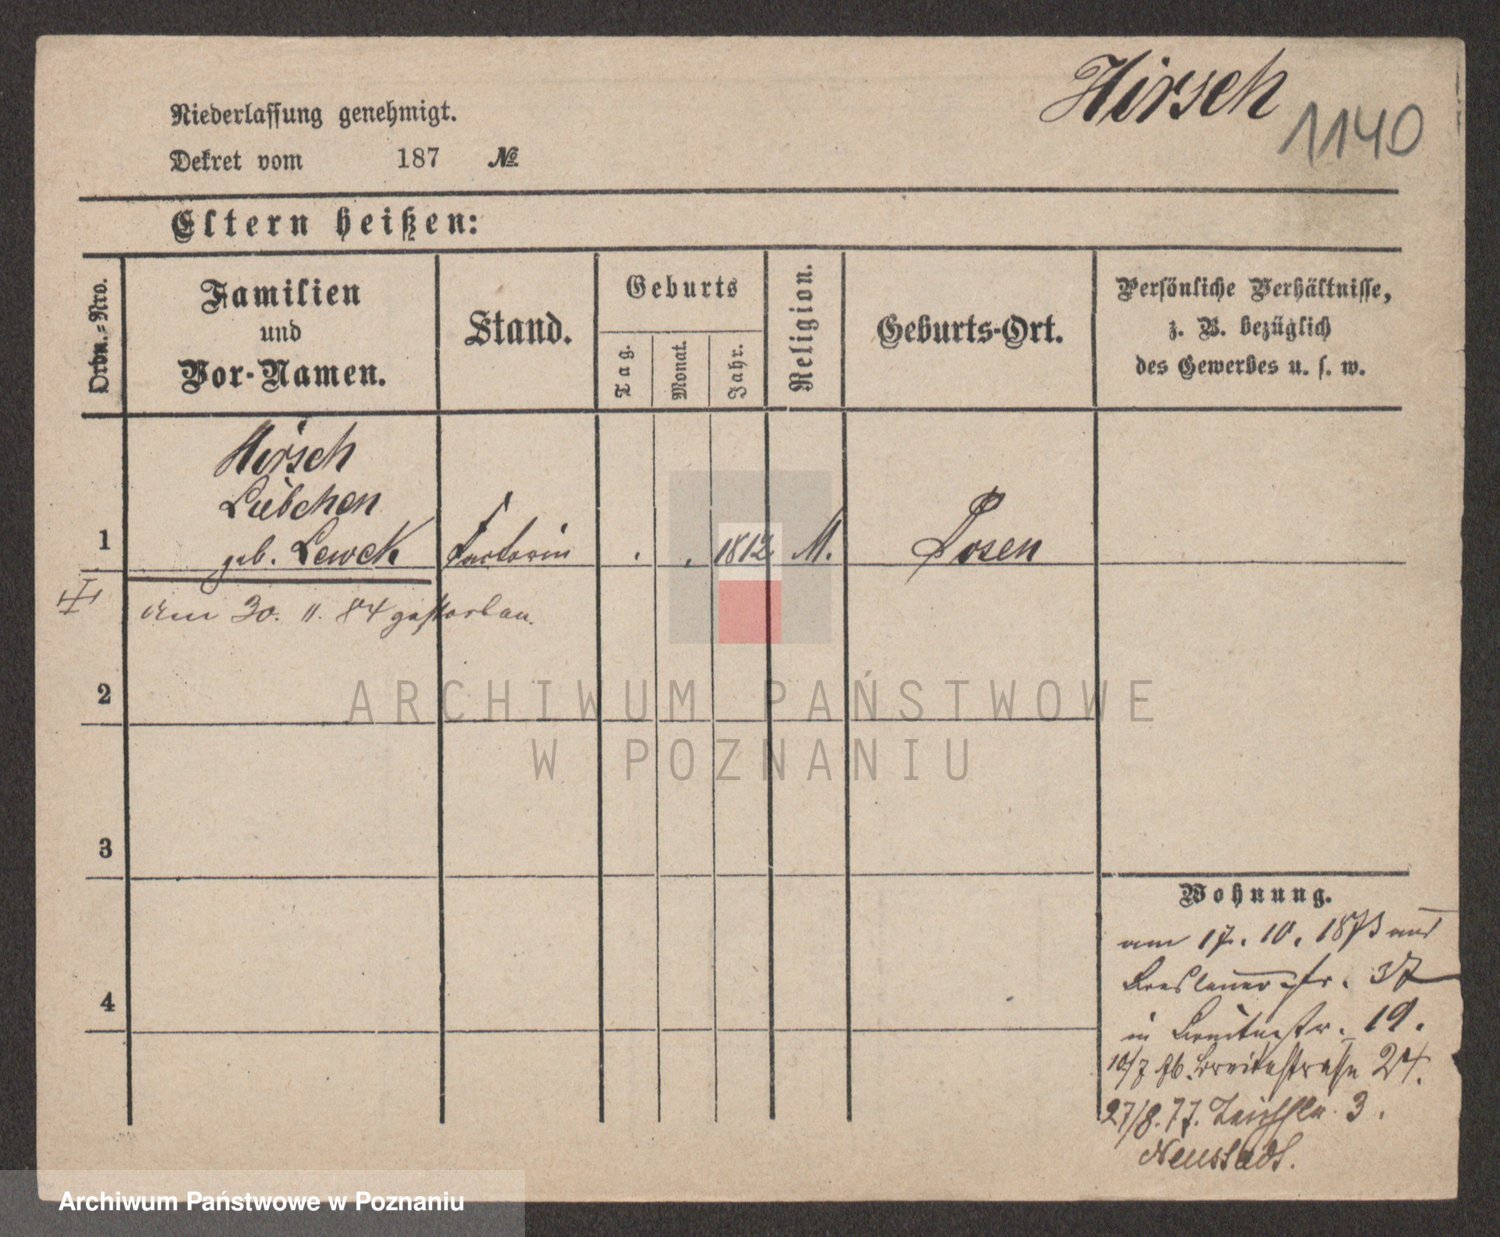 Hirsch
1140
Niederlassung genehmigt.
Dekret vom 187 №
Eltern heißen:
Ordn.-Nro.
Familien
und
Vor-Namen.
Stand.
Geburts
Tag.
Monat.
Jahr.
Religion.
Geburts-Ort.
Persönliche Verhältnisse,
z. B. bezüglich
des Gewerbes u. s. w.
Hirsch
Liebchen
1 geb. Lewek Factorin . . 1812 M. Posen
am 30. 11. 84 gestorben.
2
ARCHIWUM PAŃSTWOWE
W POZNANIU
3
4
Wohnung.
am 17. 10. 1873 aus
Breslauerstr. 37
in Breitestr. 19.
10/7 76 Breitestraße 24.
27/8. 77. 3.
Neustadt.
Archiwum Państwowe w Poznaniu